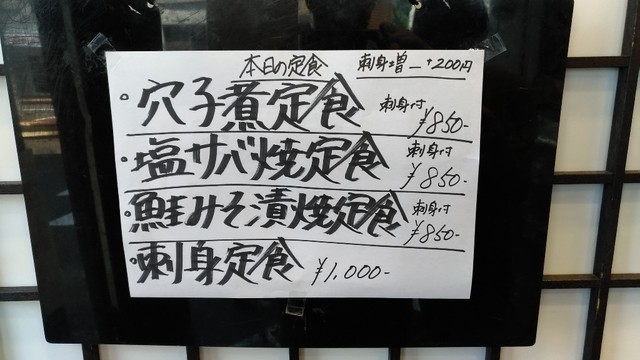 本日の定食 刺身増 ー +200円
・穴子煮定食 刺身付 ¥850-
・塩サバ焼定食 刺身付 ¥850-
・鮭みそ漬焼定食 刺身付 ¥850-
・刺身定食 ¥1,000-